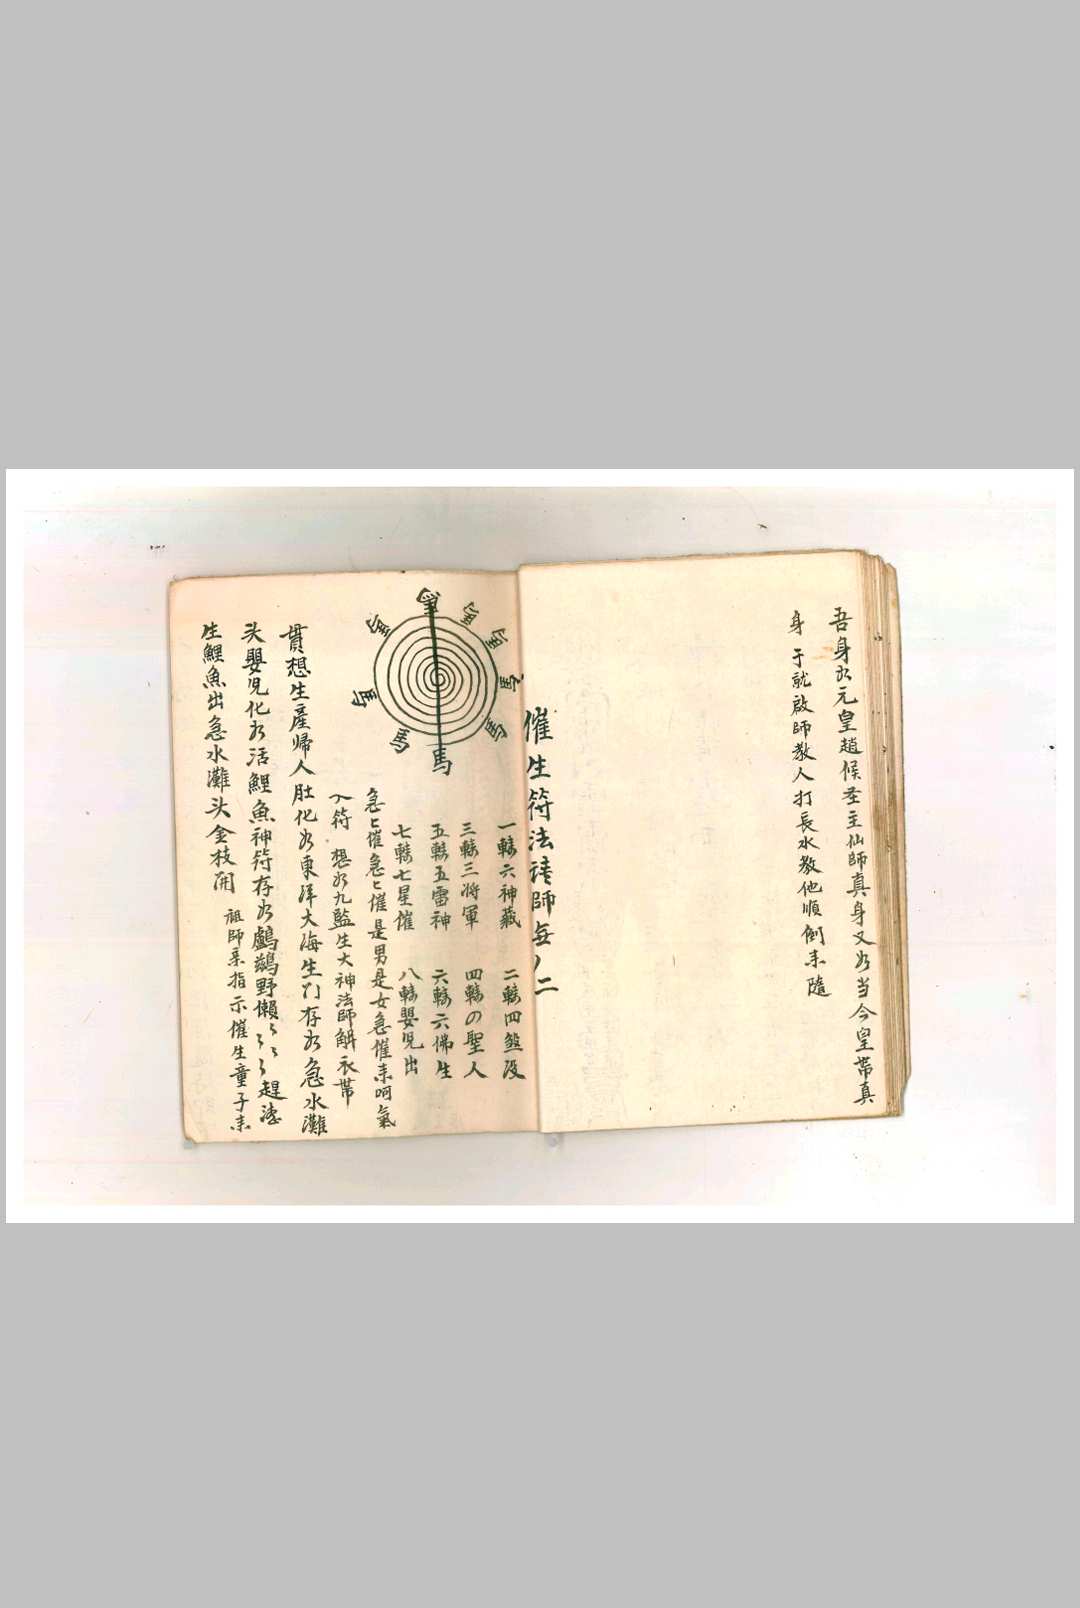 吾身为元皇趙候圣主仙師真身又为当今皇帶真
身于就啟師教人打長水教他順倒耒隨
催生符法請師每ノ二
一轉六神藏 二轉四煞没
三轉三将軍 四轉の聖人
五轉五雷神 六轉六佛生
七轉七星催 八轉嬰児出
急ヒ催急ヒ催是男是女急催耒呵氣
入符 想为九監生大神法師解衣帶
貫想生產帰人肚化为東洋大海生门存为急水灘
头嬰児化为活鯉魚神符存为鸕鷀野懶
生鯉魚出急水灘头金枝開 祖師耒指示催生童子耒
馬